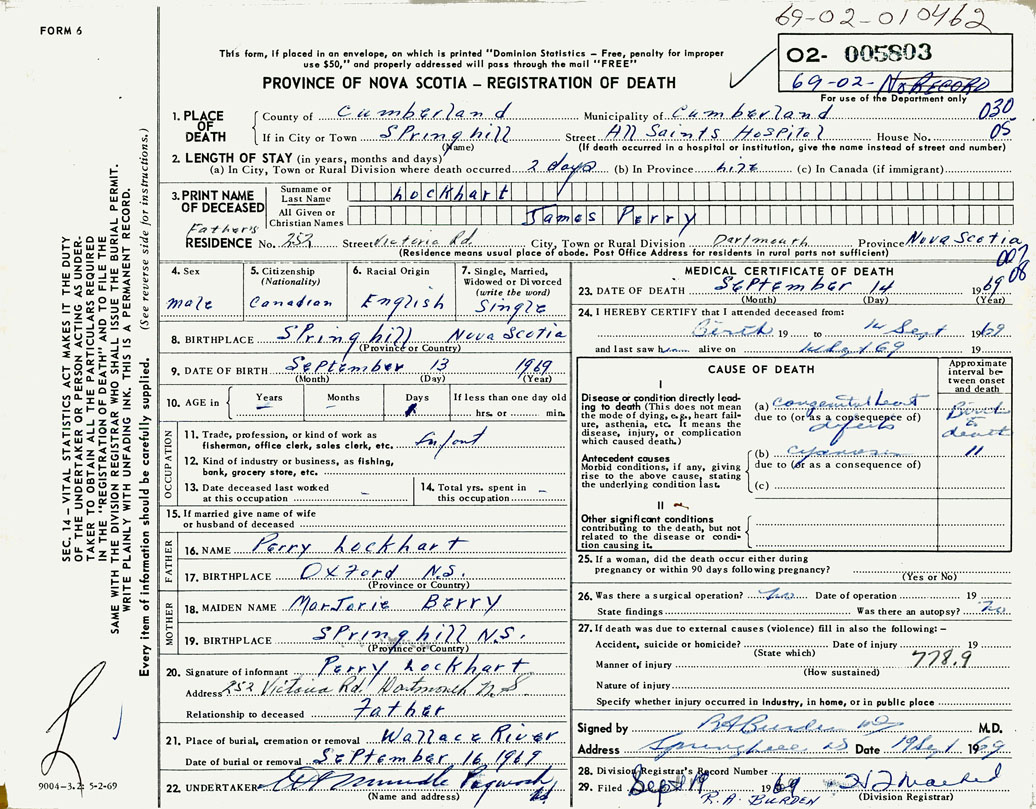 FORM 6
69-02-010462
This form, if placed in an envelope, on which is printed "Dominion Statistics – Free, penalty for improper
use $50," and properly addressed will pass through the mail "FREE"
02- 005803
69-02- No RECORD
For use of the Department only
PROVINCE OF NOVA SCOTIA – REGISTRATION OF DEATH
1. PLACE OF DEATH
County of Cumberland Municipality of Cumberland 030
If in City or Town Springhill Street All Saints Hospital House No. 05
(Name) (If death occurred in a hospital or institution, give the name instead of street and number)
2. LENGTH OF STAY (in years, months and days)
(a) In City, Town or Rural Division where death occurred 2 days (b) In Province life (c) In Canada (if immigrant)
3. PRINT NAME OF DECEASED
Surname or Last Name Lockhart
All Given or Christian Names James Perry
Father's
RESIDENCE No. 252 Street Victoria Rd. City, Town or Rural Division Dartmouth Province Nova Scotia
(Residence means usual place of abode. Post Office Address for residents in rural parts not sufficient)
007
08
4. Sex
male
5. Citizenship
(Nationality)
Canadian
6. Racial Origin
English
7. Single, Married, Widowed or Divorced
(write the word)
Single
8. BIRTHPLACE Springhill Nova Scotia
(Province or Country)
9. DATE OF BIRTH September 13 1969
(Month) (Day) (Year)
10. AGE in Years – Months – Days 1 If less than one day old
hrs. or min.
OCCUPATION
11. Trade, profession, or kind of work as
fisherman, office clerk, sales clerk, etc. Infant
12. Kind of industry or business, as fishing,
bank, grocery store, etc.
13. Date deceased last worked
at this occupation –
14. Total yrs. spent in
this occupation –
15. If married give name of wife
or husband of deceased
FATHER
16. NAME Perry Lockhart
17. BIRTHPLACE Oxford N.S.
(Province or Country)
MOTHER
18. MAIDEN NAME Marjorie Berry
19. BIRTHPLACE Springhill N.S.
(Province or Country)
20. Signature of informant Perry Lockhart
Address 252 Victoria Rd. Dartmouth N.S.
Relationship to deceased Father
21. Place of burial, cremation or removal Wallace River
Date of burial or removal September 16 1969
22. UNDERTAKER
(Name and address)
MEDICAL CERTIFICATE OF DEATH
23. DATE OF DEATH September 14 1969
(Month) (Day) (Year)
24. I HEREBY CERTIFY that I attended deceased from:
Birth 19 to 14 Sept 1969
and last saw him alive on 14 Sept 69 19
CAUSE OF DEATH
Approximate interval between onset and death
I
Disease or condition directly lead-
ing to death (This does not mean
the mode of dying, e.g., heart fail-
ure, asthenia, etc. It means the
disease, injury, or complication
which caused death.)
(a) congenital heart
due to (or as a consequence of)
defects
Birth to death
Antecedent causes
Morbid conditions, if any, giving
rise to the above cause, stating
the underlying condition last.
(b) cyanosis "
due to (or as a consequence of)
(c)
II
Other significant conditions
contributing to the death, but not
related to the disease or condi-
tion causing it.
25. If a woman, did the death occur either during
pregnancy or within 90 days following pregnancy?
(Yes or No)
26. Was there a surgical operation? No Date of operation 19
State findings Was there an autopsy? No
27. If death was due to external causes (violence) fill in also the following: –
Accident, suicide or homicide? Date of injury 19
(State which)
Manner of injury 778.9
(How sustained)
Nature of injury
Specify whether injury occurred in Industry, in home, or in public place
Signed by RA Burden MD M.D.
Address Springhill NS Date 19 Sept 1969
28. Division Registrar's Record Number
29. Filed Sept 19 1969
R. A. BURDEN (Division Registrar)
SEC. 14 – VITAL STATISTICS ACT MAKES IT THE DUTY
OF THE UNDERTAKER OR PERSON ACTING AS UNDER-
TAKER TO OBTAIN ALL THE PARTICULARS REQUIRED
IN THE "REGISTRATION OF DEATH" AND TO FILE THE
SAME WITH THE DIVISION REGISTRAR WHO SHALL ISSUE THE BURIAL PERMIT.
WRITE PLAINLY WITH UNFADING INK. THIS IS A PERMANENT RECORD.
Every item of information should be carefully supplied. (See reverse side for instructions.)
9004-3.2: 5-2-69